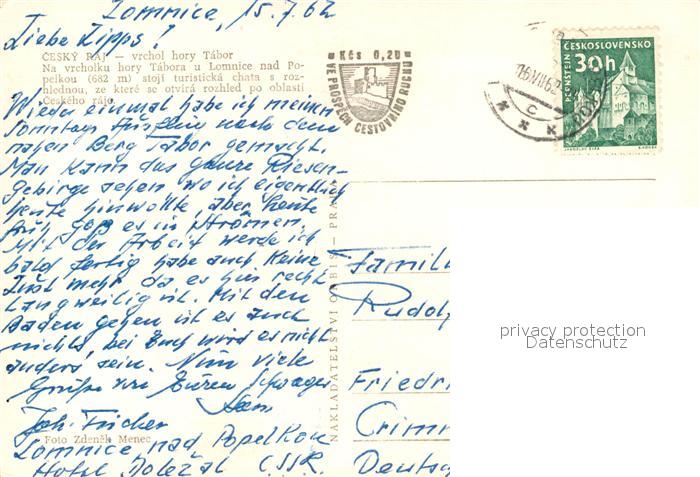 Lomnice, 15.7.62
Liebe Zipps!
ČESKÝ RÁJ — vrchol hory Tábor
Na vrcholku hory Táboru u Lomnice nad Po-
pelkou (682 m) stojí turistická chata s roz-
hlednou, ze které se otvírá rozhled po oblasti
Českého ráje.
Wieder einmal habe ich meinen
Sonntags Ausflug nach dem
nahen Berg Tabor gemacht.
Man kann das ganze Riesen-
gebirge sehen, wo ich eigentlich
heute hinwollte, aber heute
früh goß es in Strömen.
Mit der Arbeit werde ich
bald fertig habe auch keine
Lust mehr da es hier recht
langweilig ist. Mit den
Baden gehen ist es auch
nichts bei Euch wird es nicht
anders sein. Nun viele
Grüße von Euren Schwager
Joh. Fischer
Foto Zdeněk Menec
Lomnice nad Popelkou
Hotel Doležal ČSSR.
NAKLADATELSTVÍ ORBIS — PRAHA
Kčs 0,20
VE PROSPĚCH CESTOVNÍHO RUCHU
16.VII.62
ČESKOSLOVENSKO
30h
PERNŠTEJN
Famili
Rudolf
Friedri
Crimm
Deutsch
privacy protection
Datenschutz